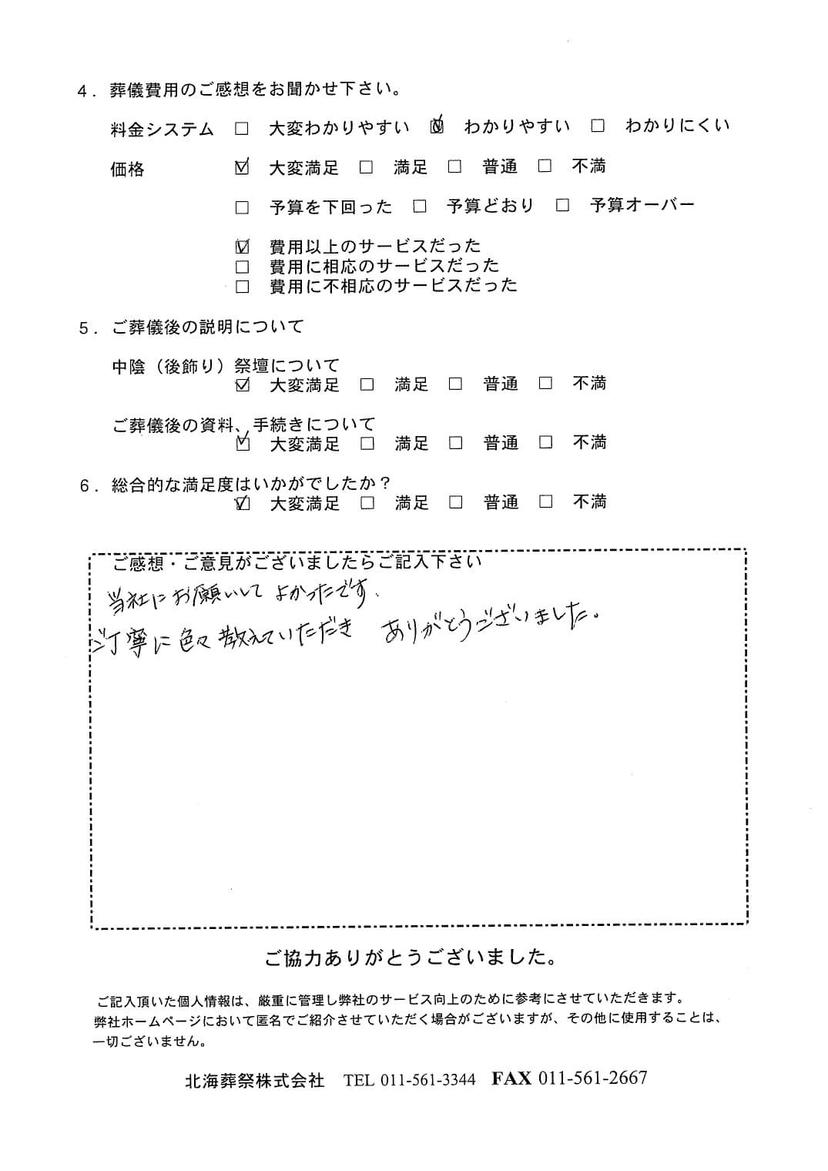 4．葬儀費用のご感想をお聞かせ下さい。
料金システム □ 大変わかりやすい ☑ わかりやすい □ わかりにくい
価格 ☑ 大変満足 □ 満足 □ 普通 □ 不満
□ 予算を下回った □ 予算どおり □ 予算オーバー
☑ 費用以上のサービスだった
□ 費用に相応のサービスだった
□ 費用に不相応のサービスだった
5．ご葬儀後の説明について
中陰（後飾り）祭壇について
☑ 大変満足 □ 満足 □ 普通 □ 不満
ご葬儀後の資料、手続きについて
☑ 大変満足 □ 満足 □ 普通 □ 不満
6．総合的な満足度はいかがでしたか？
☑ 大変満足 □ 満足 □ 普通 □ 不満
ご感想・ご意見がございましたらご記入下さい
当社にお願いして よかったです、
ご丁寧に色々教えていただき ありがとうございました。
ご協力ありがとうございました。
ご記入頂いた個人情報は、厳重に管理し弊社のサービス向上のために参考にさせていただきます。
弊社ホームページにおいて匿名でご紹介させていただく場合がございますが、その他に使用することは、
一切ございません。
北海葬祭株式会社 TEL 011-561-3344 FAX 011-561-2667